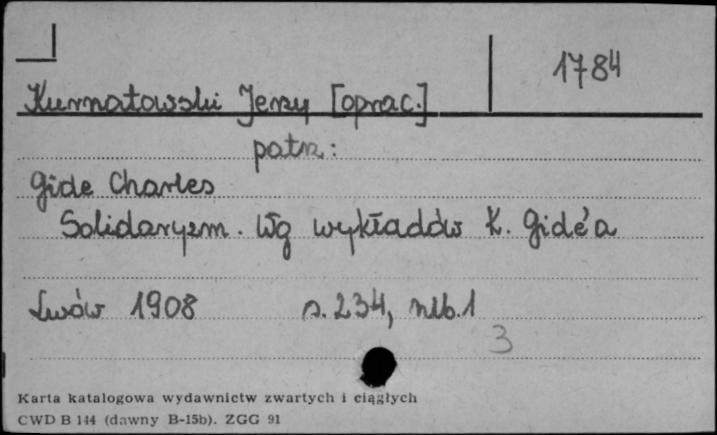 1784
Kurnatowski Jerzy [oprac.]
patrz:
Gide Charles
Solidaryzm. Wg wykładów K. Gide'a
Lwów 1908 s. 234, nlb. 1
3
Karta katalogowa wydawnictw zwartych i ciągłych
CWD B 144 (dawny B-15b). ZGG 91